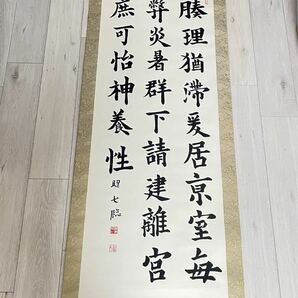 腠理猶滯爰居京室每
弊炎暑群下請建離宮
庶可怡神養性
昭七臨